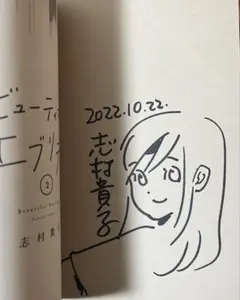 ビューティ
エブリ
2
志村貴
2022.10.22.
志村貴子